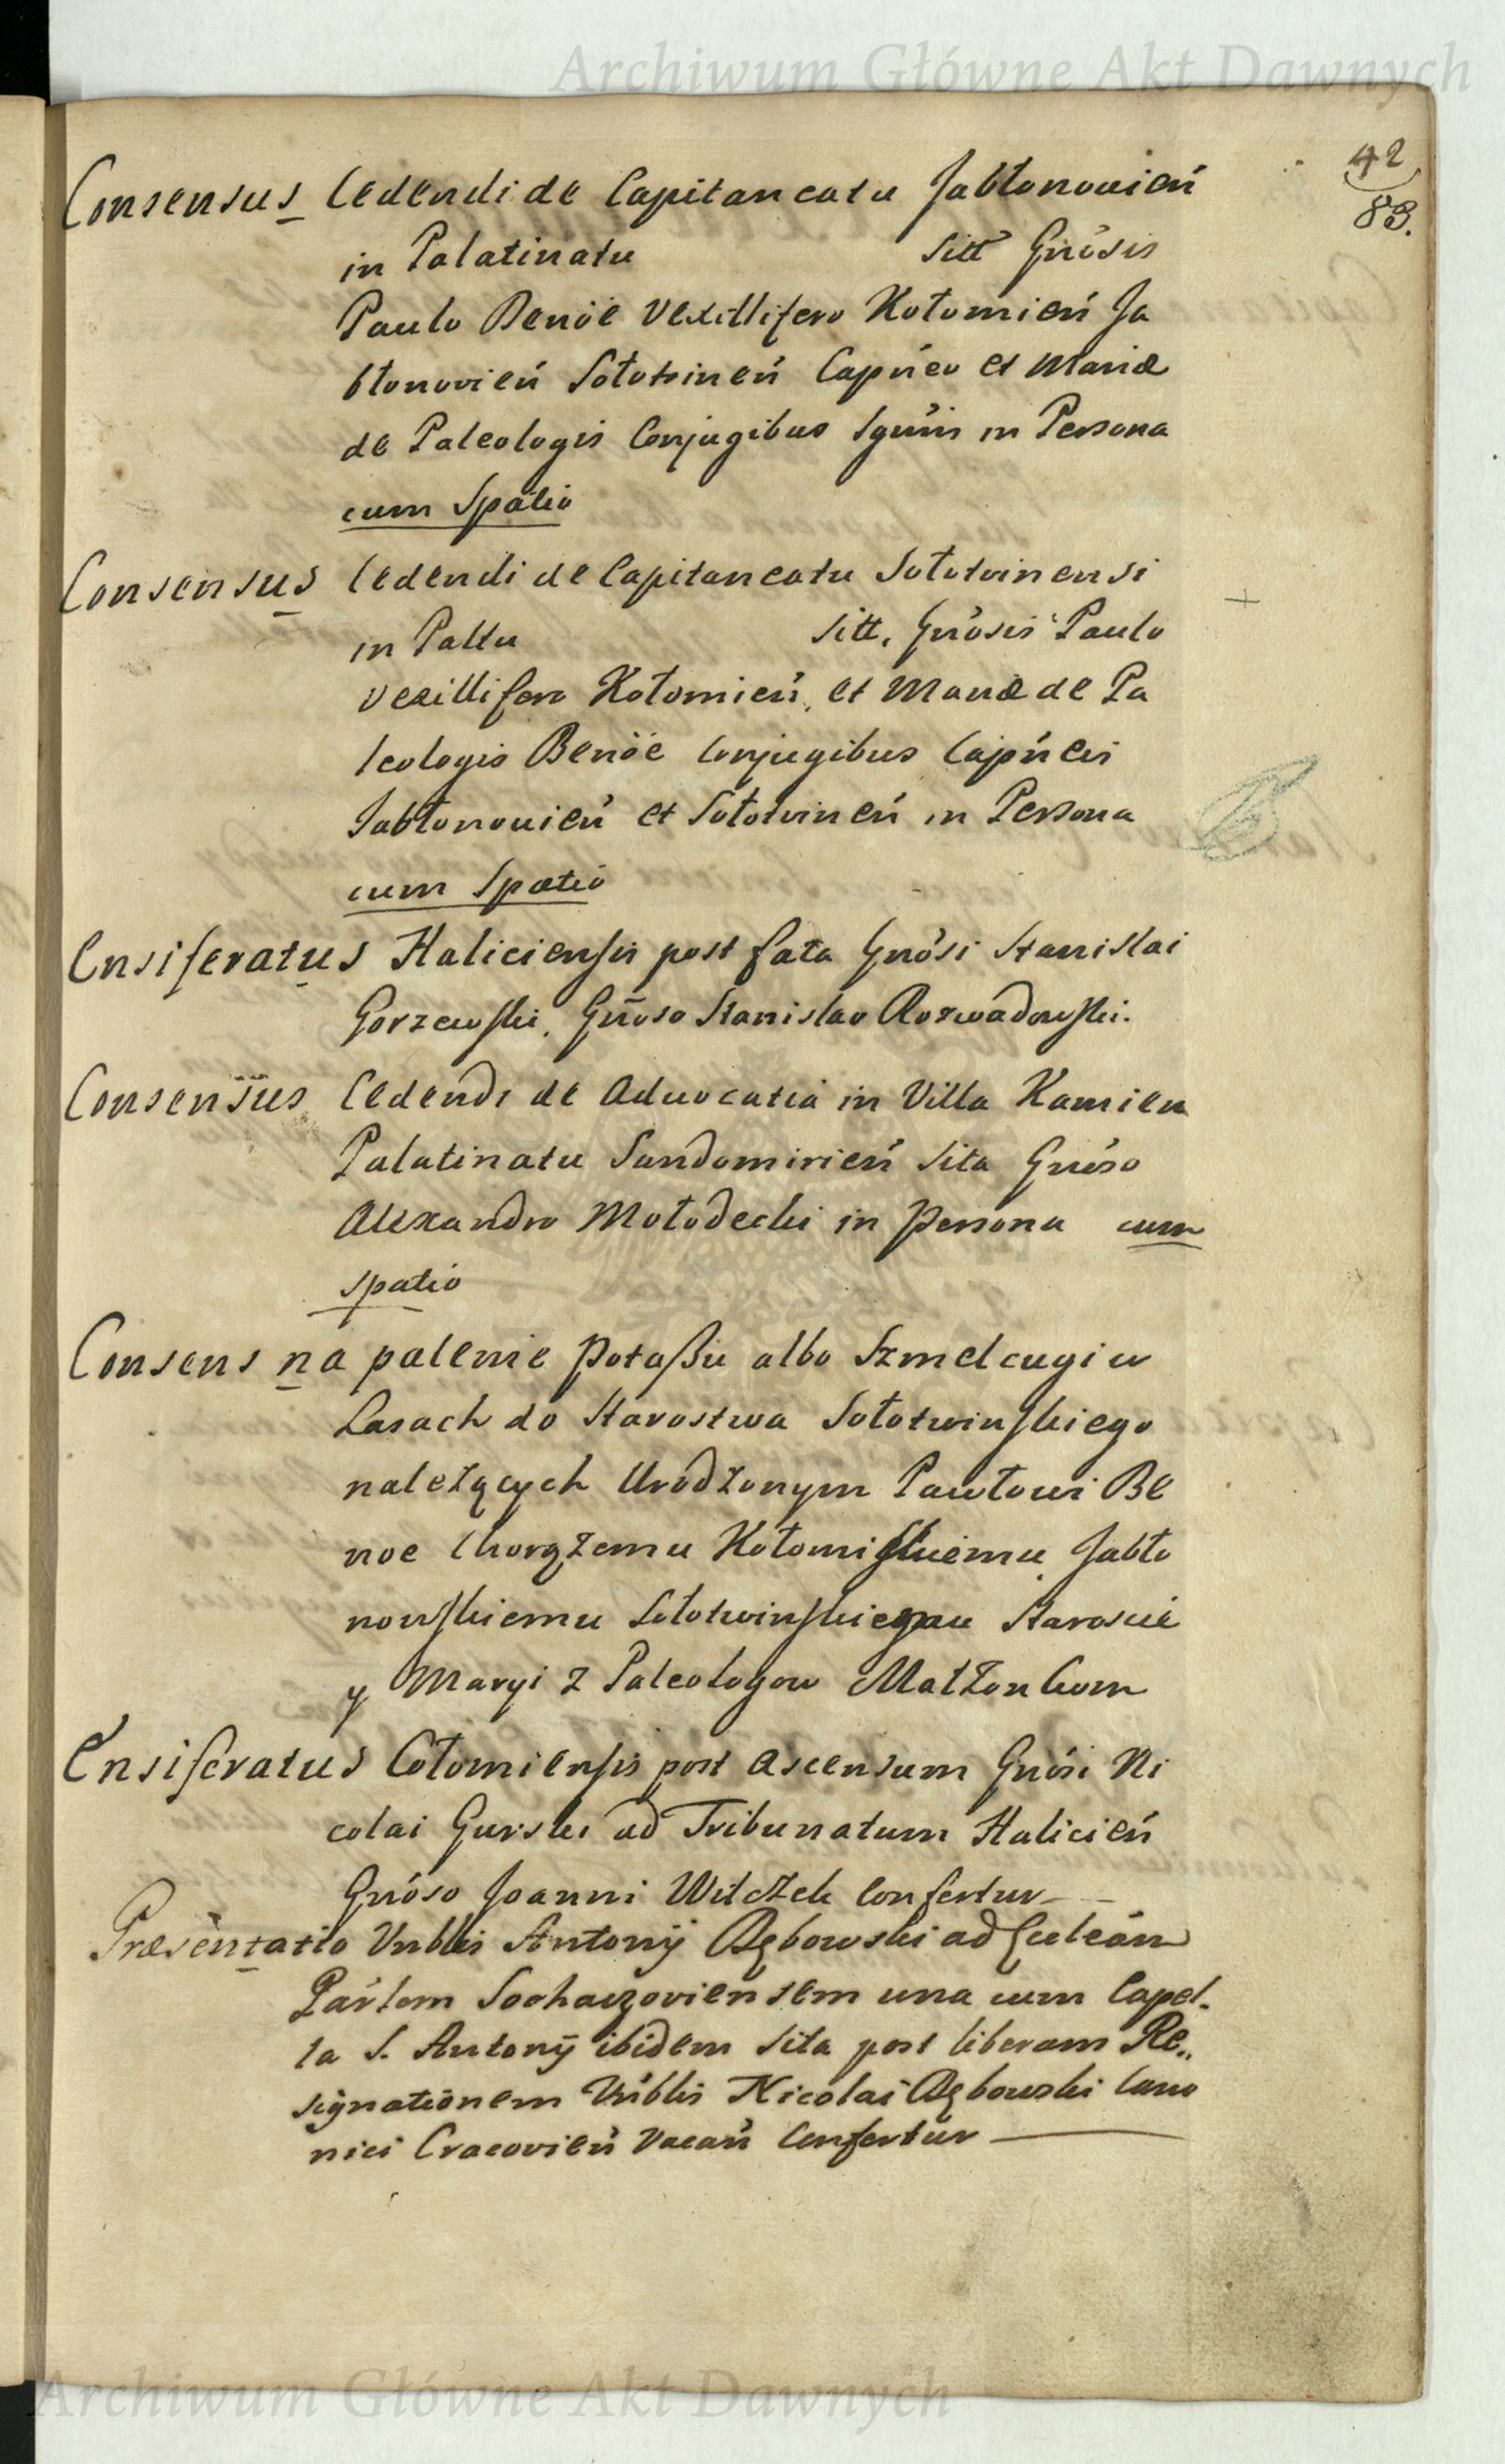 Archiwum Główne Akt Dawnych
42
83.
Consensus Cedendi de Capitaneatu Jabłonovień
in Palatinatu Sitt Gnósis
Paulo Benöe Vexillifero Kołomień Ja
błonovień Sołotvineń Capńeo et Mariæ
de Paleologis Conjugibus in Persona
cum Spatio
Consensus Cedendi de Capitaneatu Sołotvinensi
in Paltu Sitt. Gnósis Paulo
Vexillifero Kołomień, et Mariæ de Pa
leologis Benöe Conjugibus Capńeis
Jabłonovień et Sołotvineń in Persona
cum Spatio
Ensiferatus Haliciensis post fata Gnósi Stanislai
Gorzewski, Gnoso Stanislao Rozwadowski.
Consensus Cedendi de Advocatia in Villa Kamien
Palatinatu Sandomirień Sita Gnóso
Alexandro Mołodecki in persona cum
spatio
Consens na palenie Potaßu albo Szmelcugi w
Lasach do Starostwa Sołotwinskiego
należących Urodzonym Pawłowi Be
noe Chorążemu Kołomiskiemu, Jabło
nowskiemu Staroscie
y Maryi z Paleologow Małżonkom
Ensiferatus Cołomiensis post ascensum Gnósi Ni
colai Gurski ad Tribunatum Halicień
Gnóso Joanni Wilczek Confertur
Præsentatio Vnblis Antonij Dębowski ad Eccleám
Párlem Sochaczoviensem una cum Capel-
la S. Antonÿ ibidem Sita post liberam Re„
signationem Vnblis Nicolai Dębowski Cano
nici Cracovień Vacań Confertur
Archiwum Główne Akt Dawnych